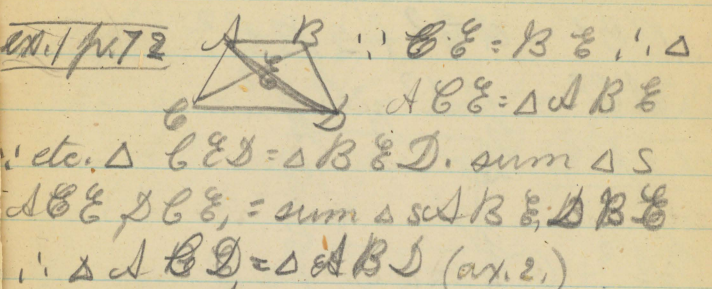 ex. 1 p. 72 A B ∵ CE = BE ∴ △
E
C D ACE = △ ABE
∵ etc. △ CED = △ BED. sum △s
ACE, DCE, = sum △s ABE, DBE
∴ △ ACD, = △ ABD (ax. 2.)